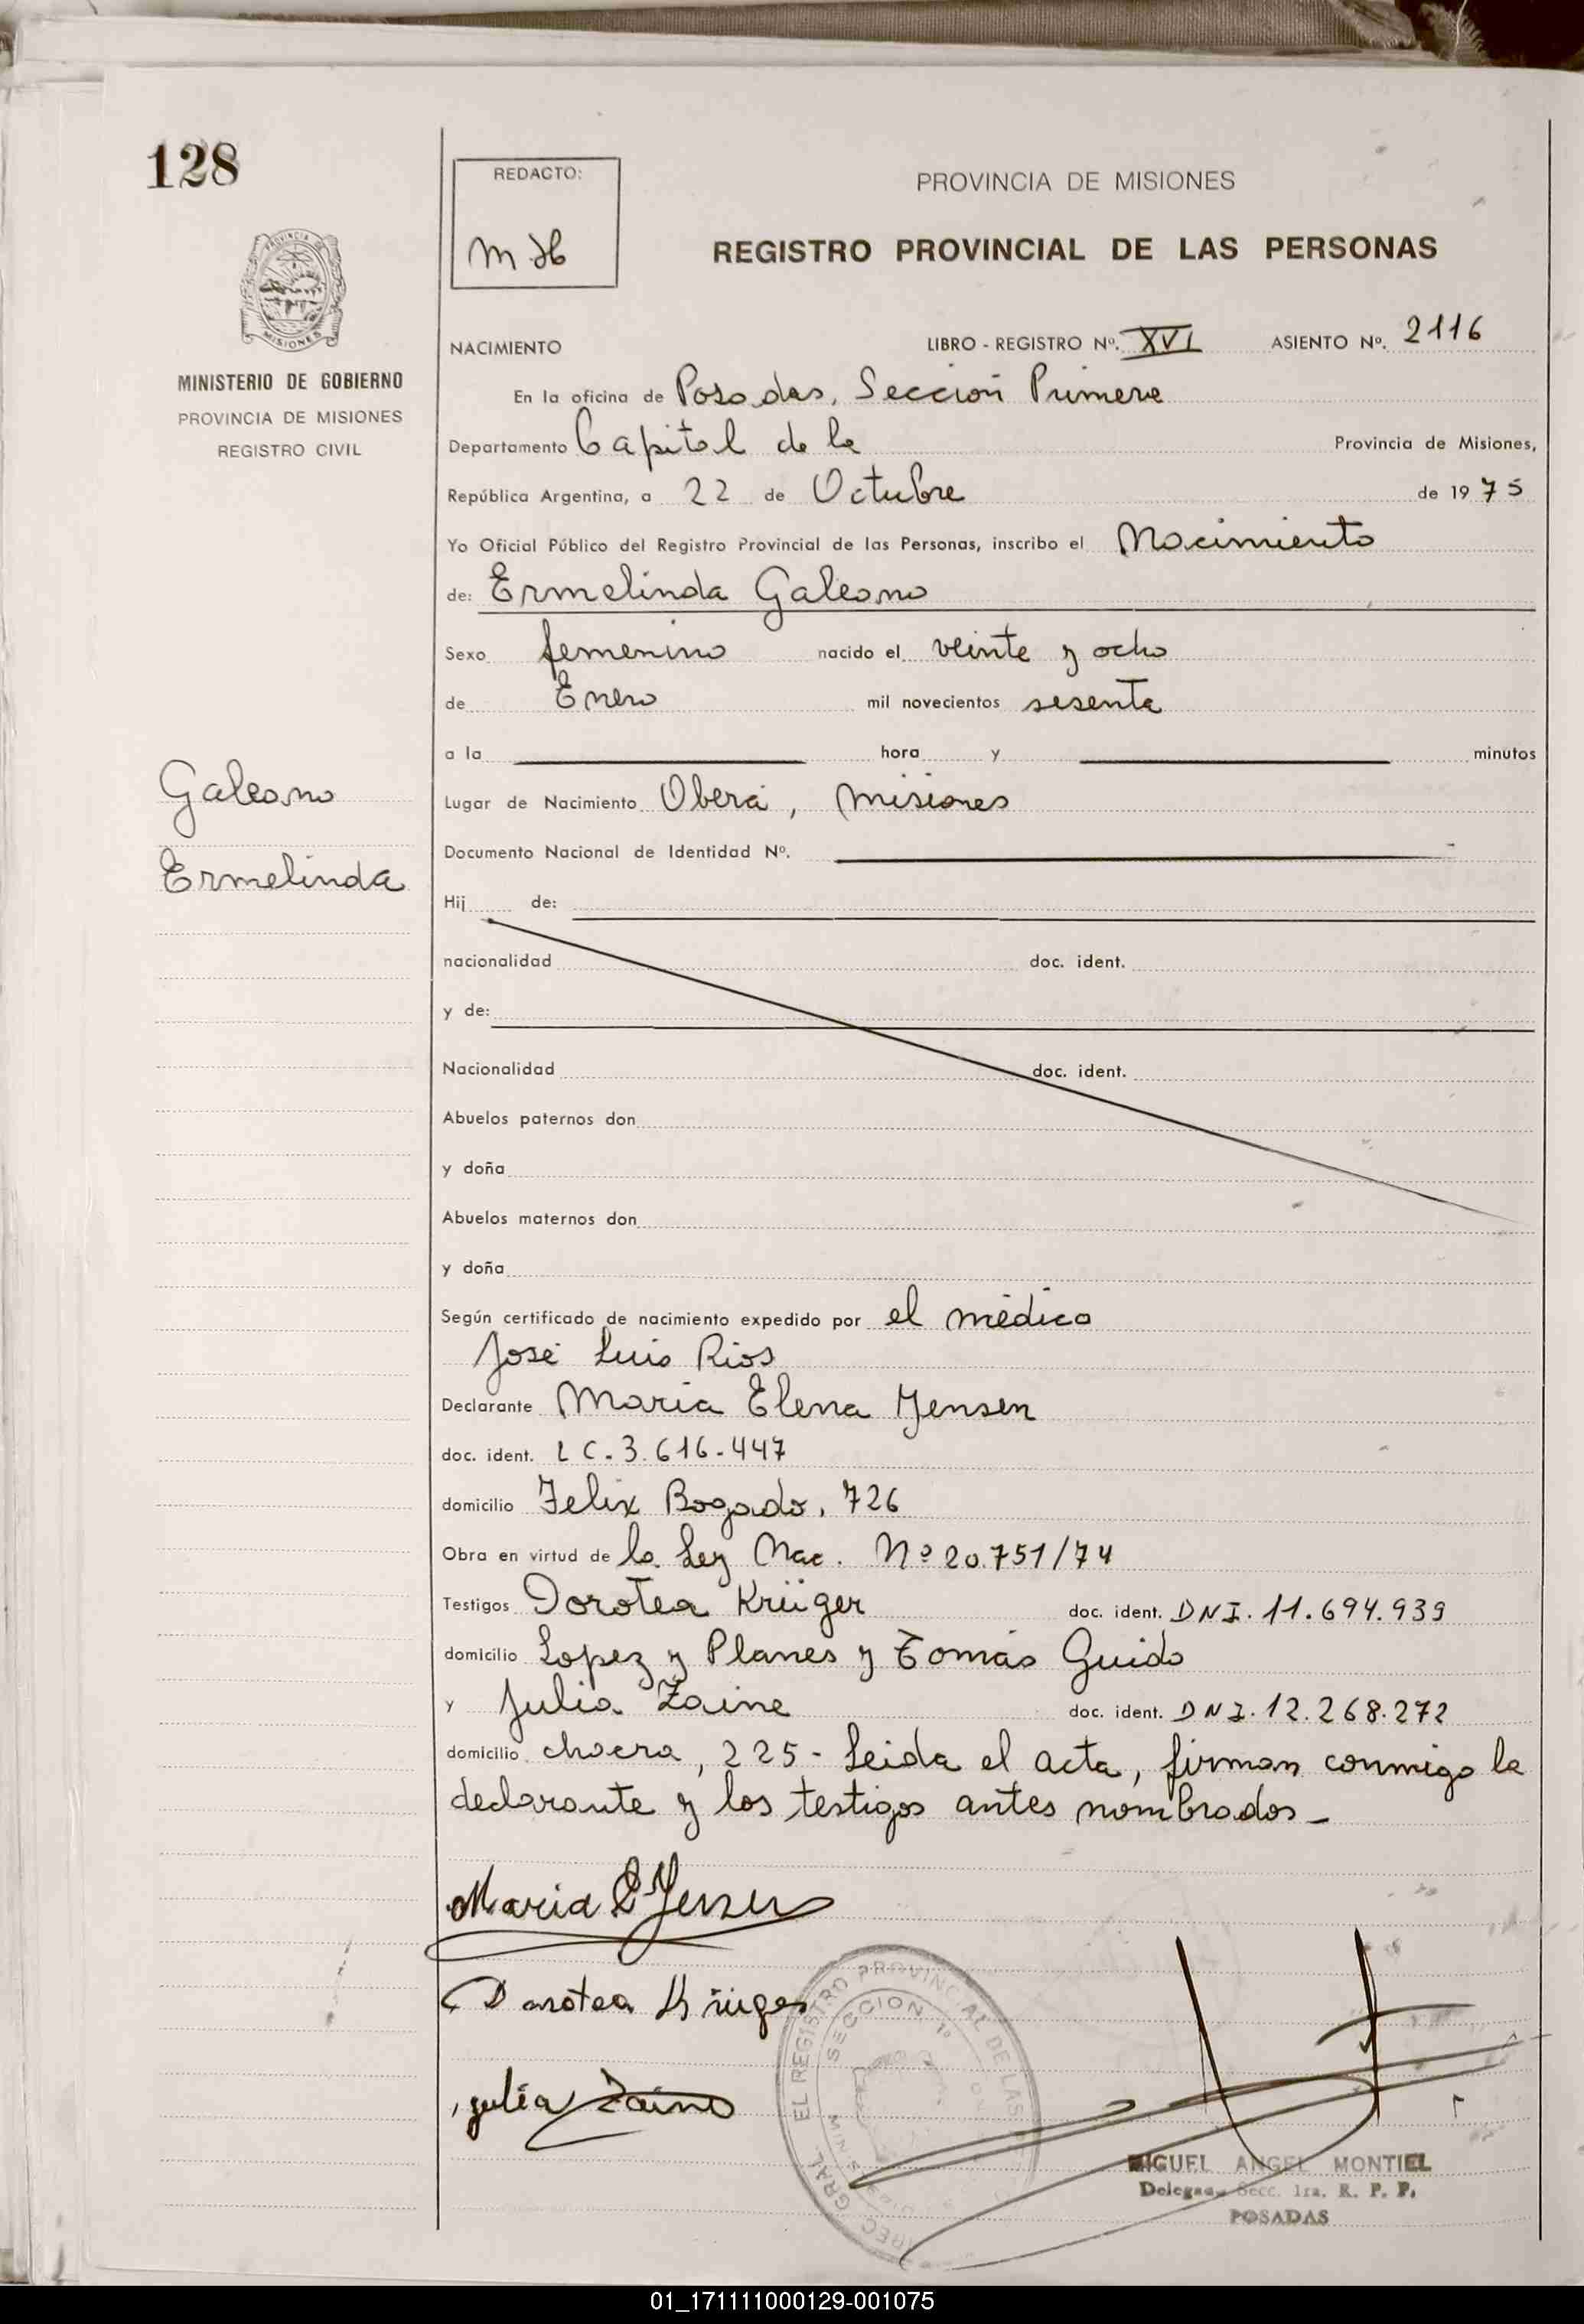 128
REDACTO:
MH
PROVINCIA DE MISIONES
REGISTRO PROVINCIAL DE LAS PERSONAS
PROVINCIA DE
MISIONES
MINISTERIO DE GOBIERNO
PROVINCIA DE MISIONES
REGISTRO CIVIL
NACIMIENTO LIBRO - REGISTRO Nº. XVI ASIENTO Nº. 2116
En la oficina de Posadas, Sección Primera
Departamento Capital de la Provincia de Misiones,
República Argentina, a 22 de Octubre de 1975
Yo Oficial Público del Registro Provincial de las Personas, inscribo el Nacimiento
de: Ermelinda Galeano
Sexo femenino nacido el veinte y ocho
de Enero mil novecientos sesenta
a la hora y minutos
Galeano
Ermelinda
Lugar de Nacimiento Oberá, Misiones
Documento Nacional de Identidad Nº.
Hij de:
nacionalidad doc. ident.
y de:
Nacionalidad doc. ident.
Abuelos paternos don
y doña
Abuelos maternos don
y doña
Según certificado de nacimiento expedido por el médico
José Luis Rios
Declarante Maria Elena Jensen
doc. ident. LC. 3.616.447
domicilio Felix Bogado, 726
Obra en virtud de la Ley Nac. Nº 20.751/74
Testigos Dorotea Krüger doc. ident. DNI. 11.694.939
domicilio Lopez y Planes y Tomás Guido
y Julia Zaine doc. ident. DNI. 12.268.272
domicilio chacra, 225 - Leida el acta, firman conmigo la
declarante y los testigos antes nombrados -
Maria E Jensen
Dorotea Krüger
Julia Zaine
REGISTRO PROVINCIAL DE LAS
SECCION 1º
MIGUEL ANGEL MONTIEL
Delegado Secc. 1ra. R. P. P.
POSADAS
01_171111000129-001075